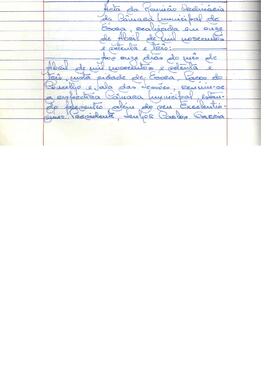 Acta da Reunião Ordinária
da Câmara Municipal de
Évora, realizada em onze
de Abril de mil novecentos
e oitenta e três:
Aos onze dias do mês de
Abril de mil novecentos e oitenta e
três, nesta cidade de Évora, Paços do
Concelho e sala das sessões, reuniu-se
a respectiva Câmara Municipal, estan-
do presentes além do seu Excelentís-
simo Presidente, Senhor Carlos Garcia